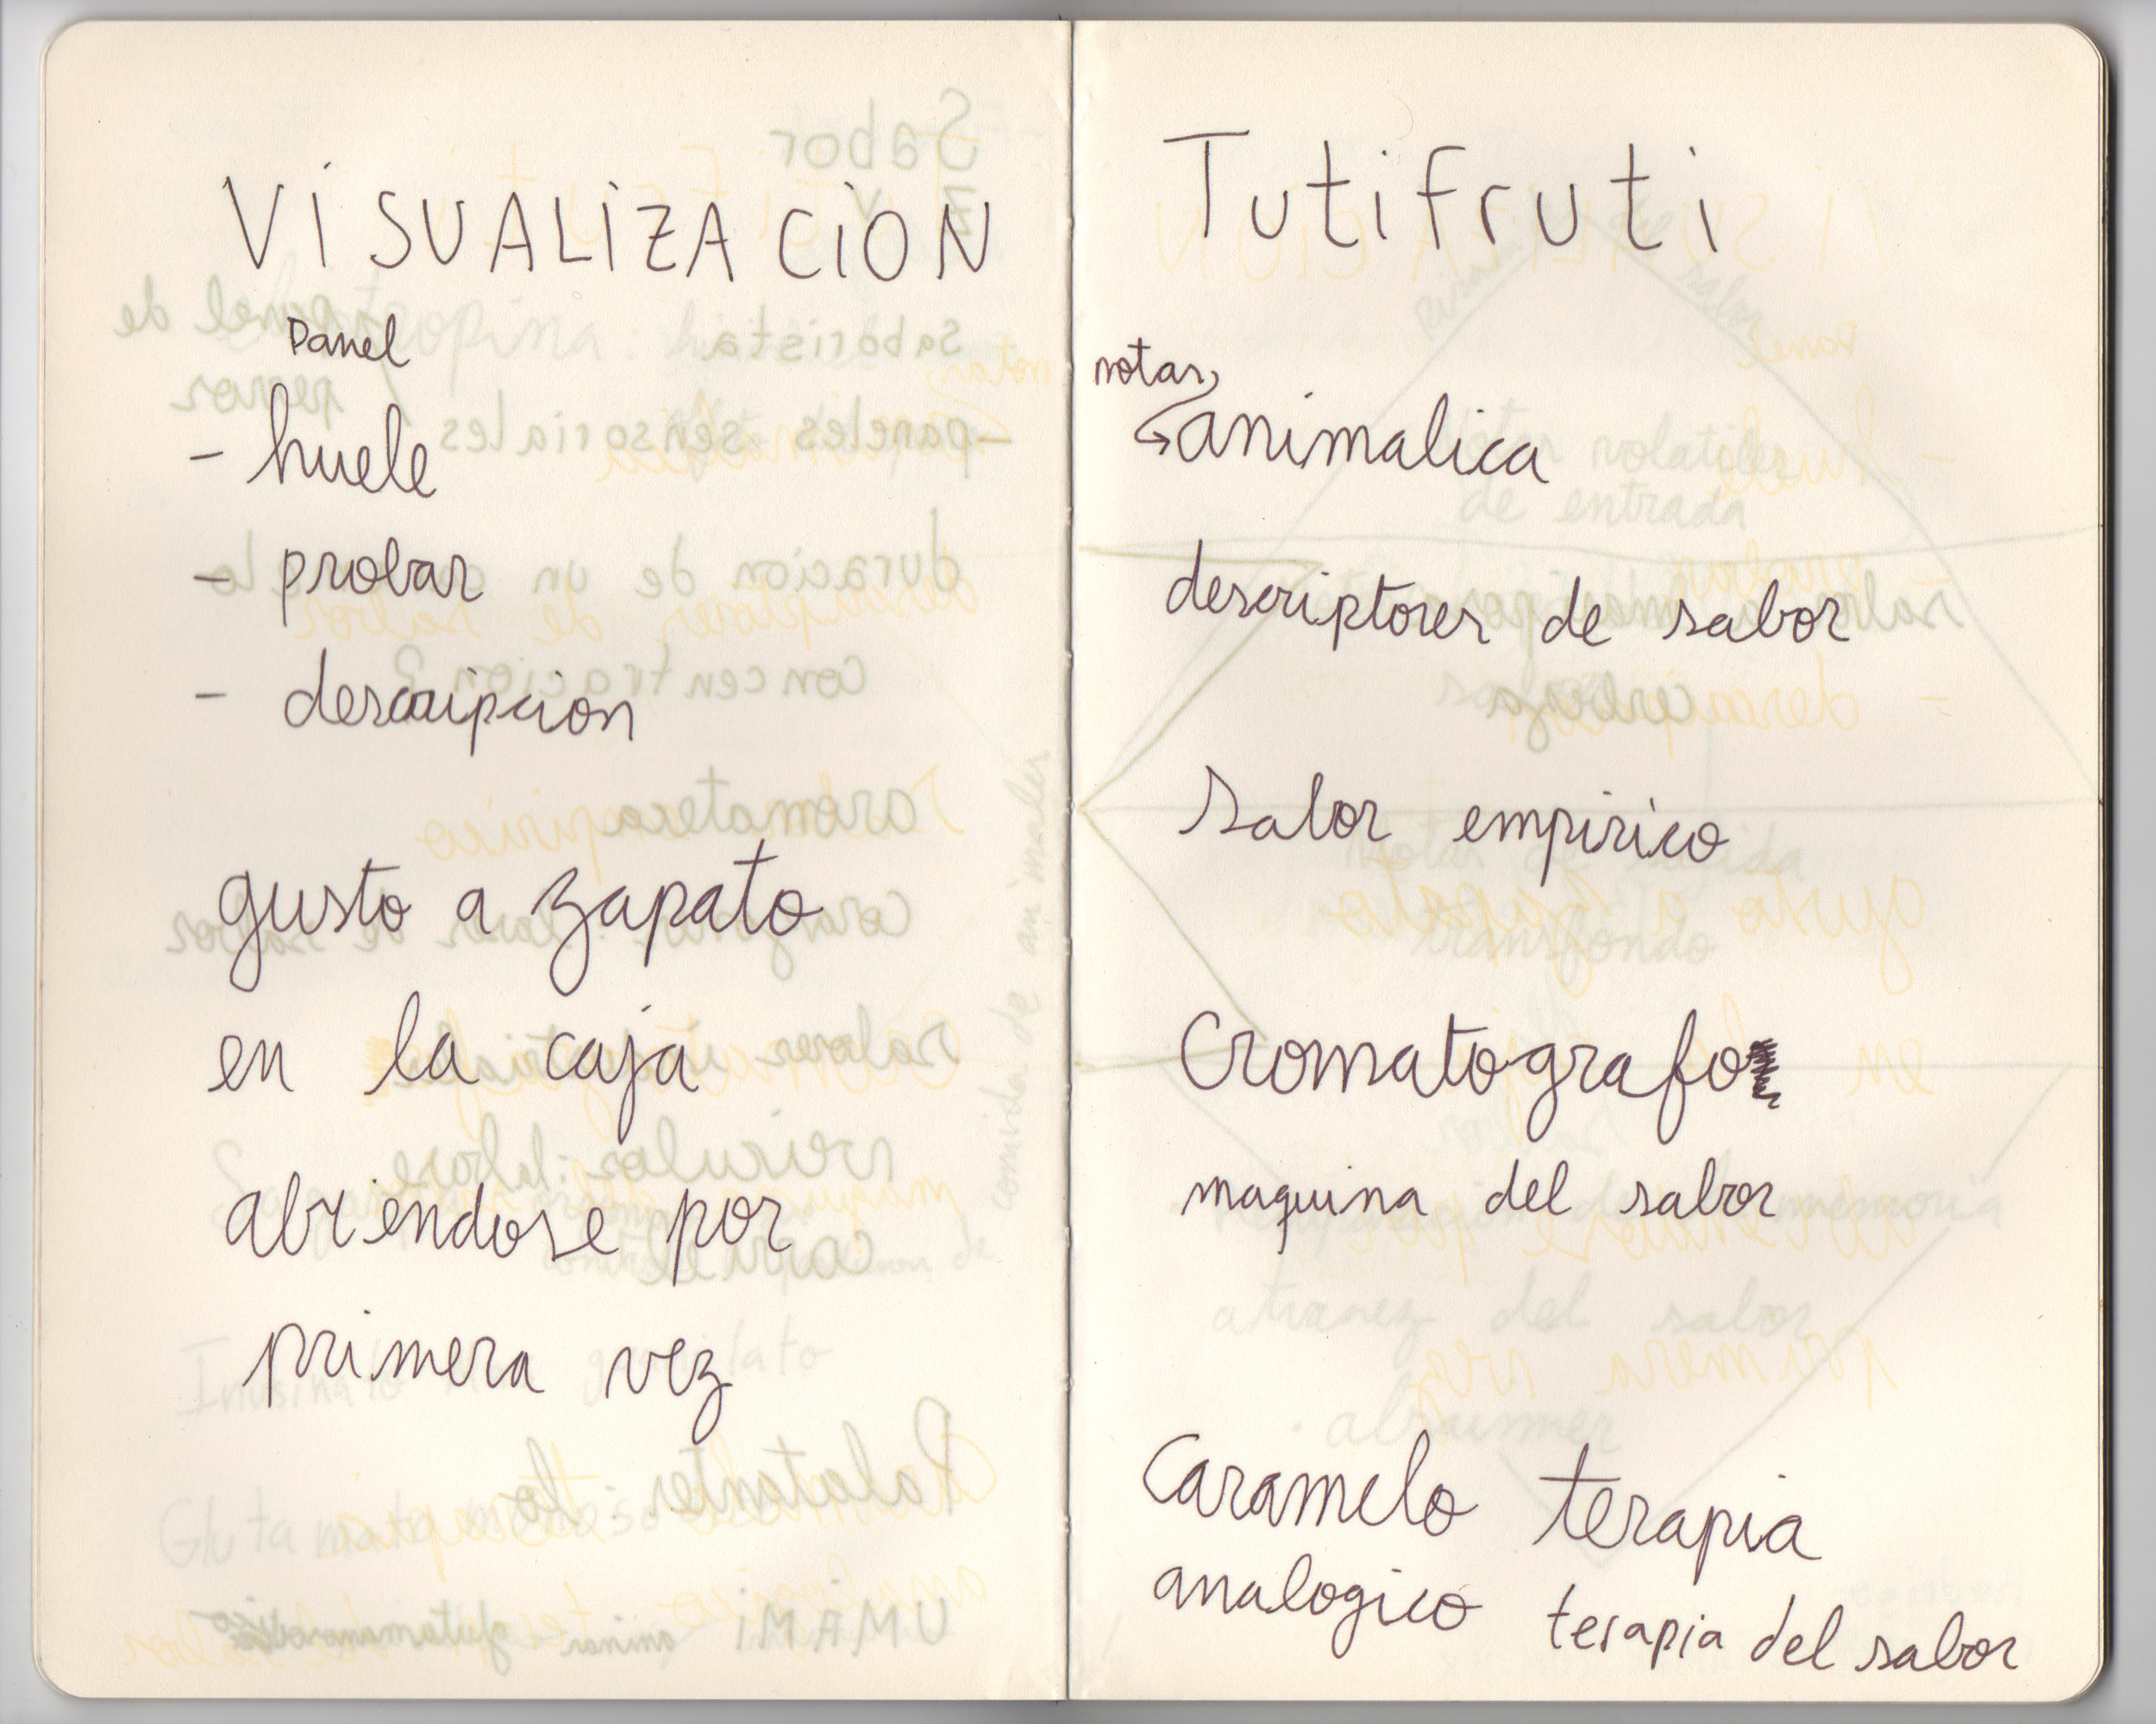 VISUALIZACION
Panel
- huele
- probar
- descripcion
gusto a zapato
en la caja
abriendose por
primera vez
Tutifruti
notas
animalica
descriptores de sabor
sabor empirico
Cromatografo
maquina del sabor
Caramelo terapia
analogico terapia del sabor